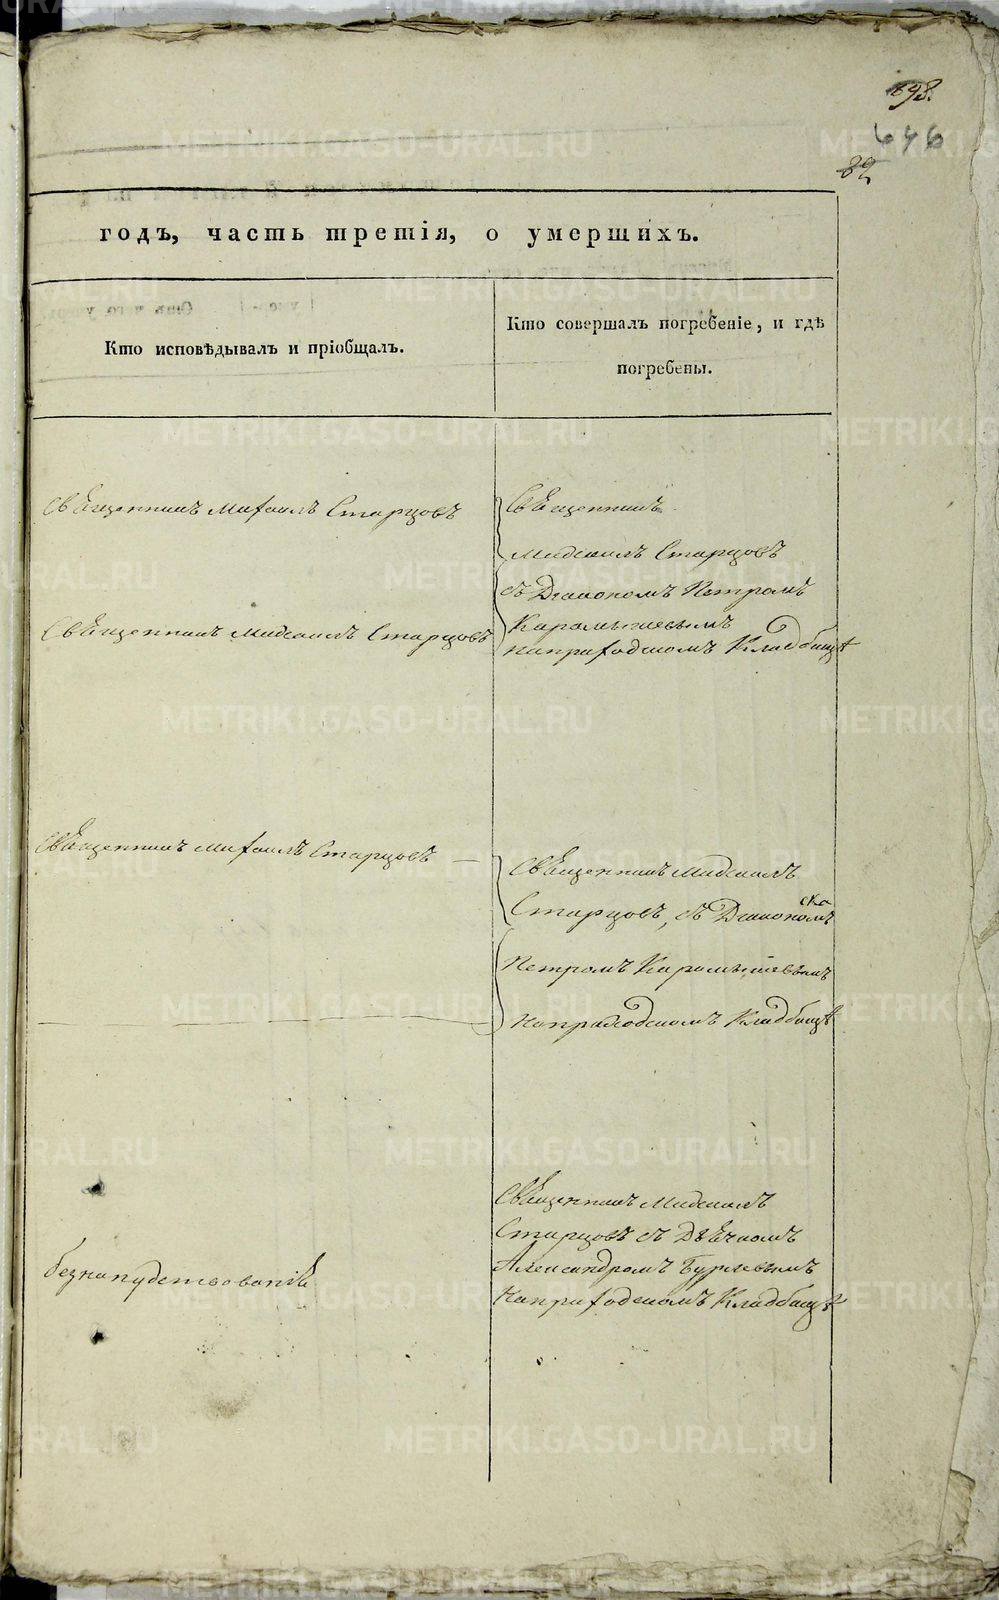 698.
646
82
годъ, часть третія, о умершихъ.
Кто исповѣдывалъ и пріобщалъ.
Кто совершалъ погребеніе, и гдѣ
погребены.
Священникъ Михаилъ Старцовъ
Священникъ
Михаилъ Старцовъ
съ Діакономъ Петромъ
Священникъ Михаилъ Старцовъ
Карамышевымъ
наприходскомъ Кладбищѣ
Священникъ Михаилъ Старцовъ
Священникъ Михаилъ
Старцовъ, съ Діакономъ
Петромъ Карамышевымъ
Наприходскомъ Кладбищѣ
Священникъ Михаилъ
Старцовъ съ Дьячкомъ
Александромъ
безнапутствованія
Наприходскомъ Кладбищѣ
METRIKI.GASO-URAL.RU